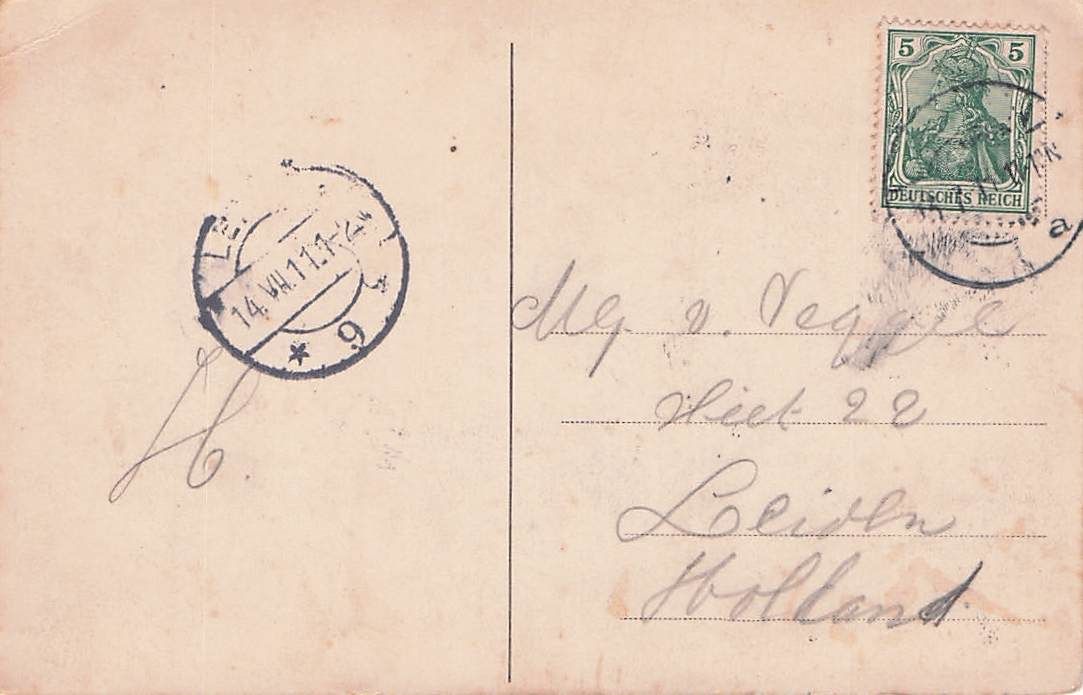 5 5
DEUTSCHES REICH
a
14.VII.11.1-2
* 9
H.
v. Teggel
22
Leiden
Holland